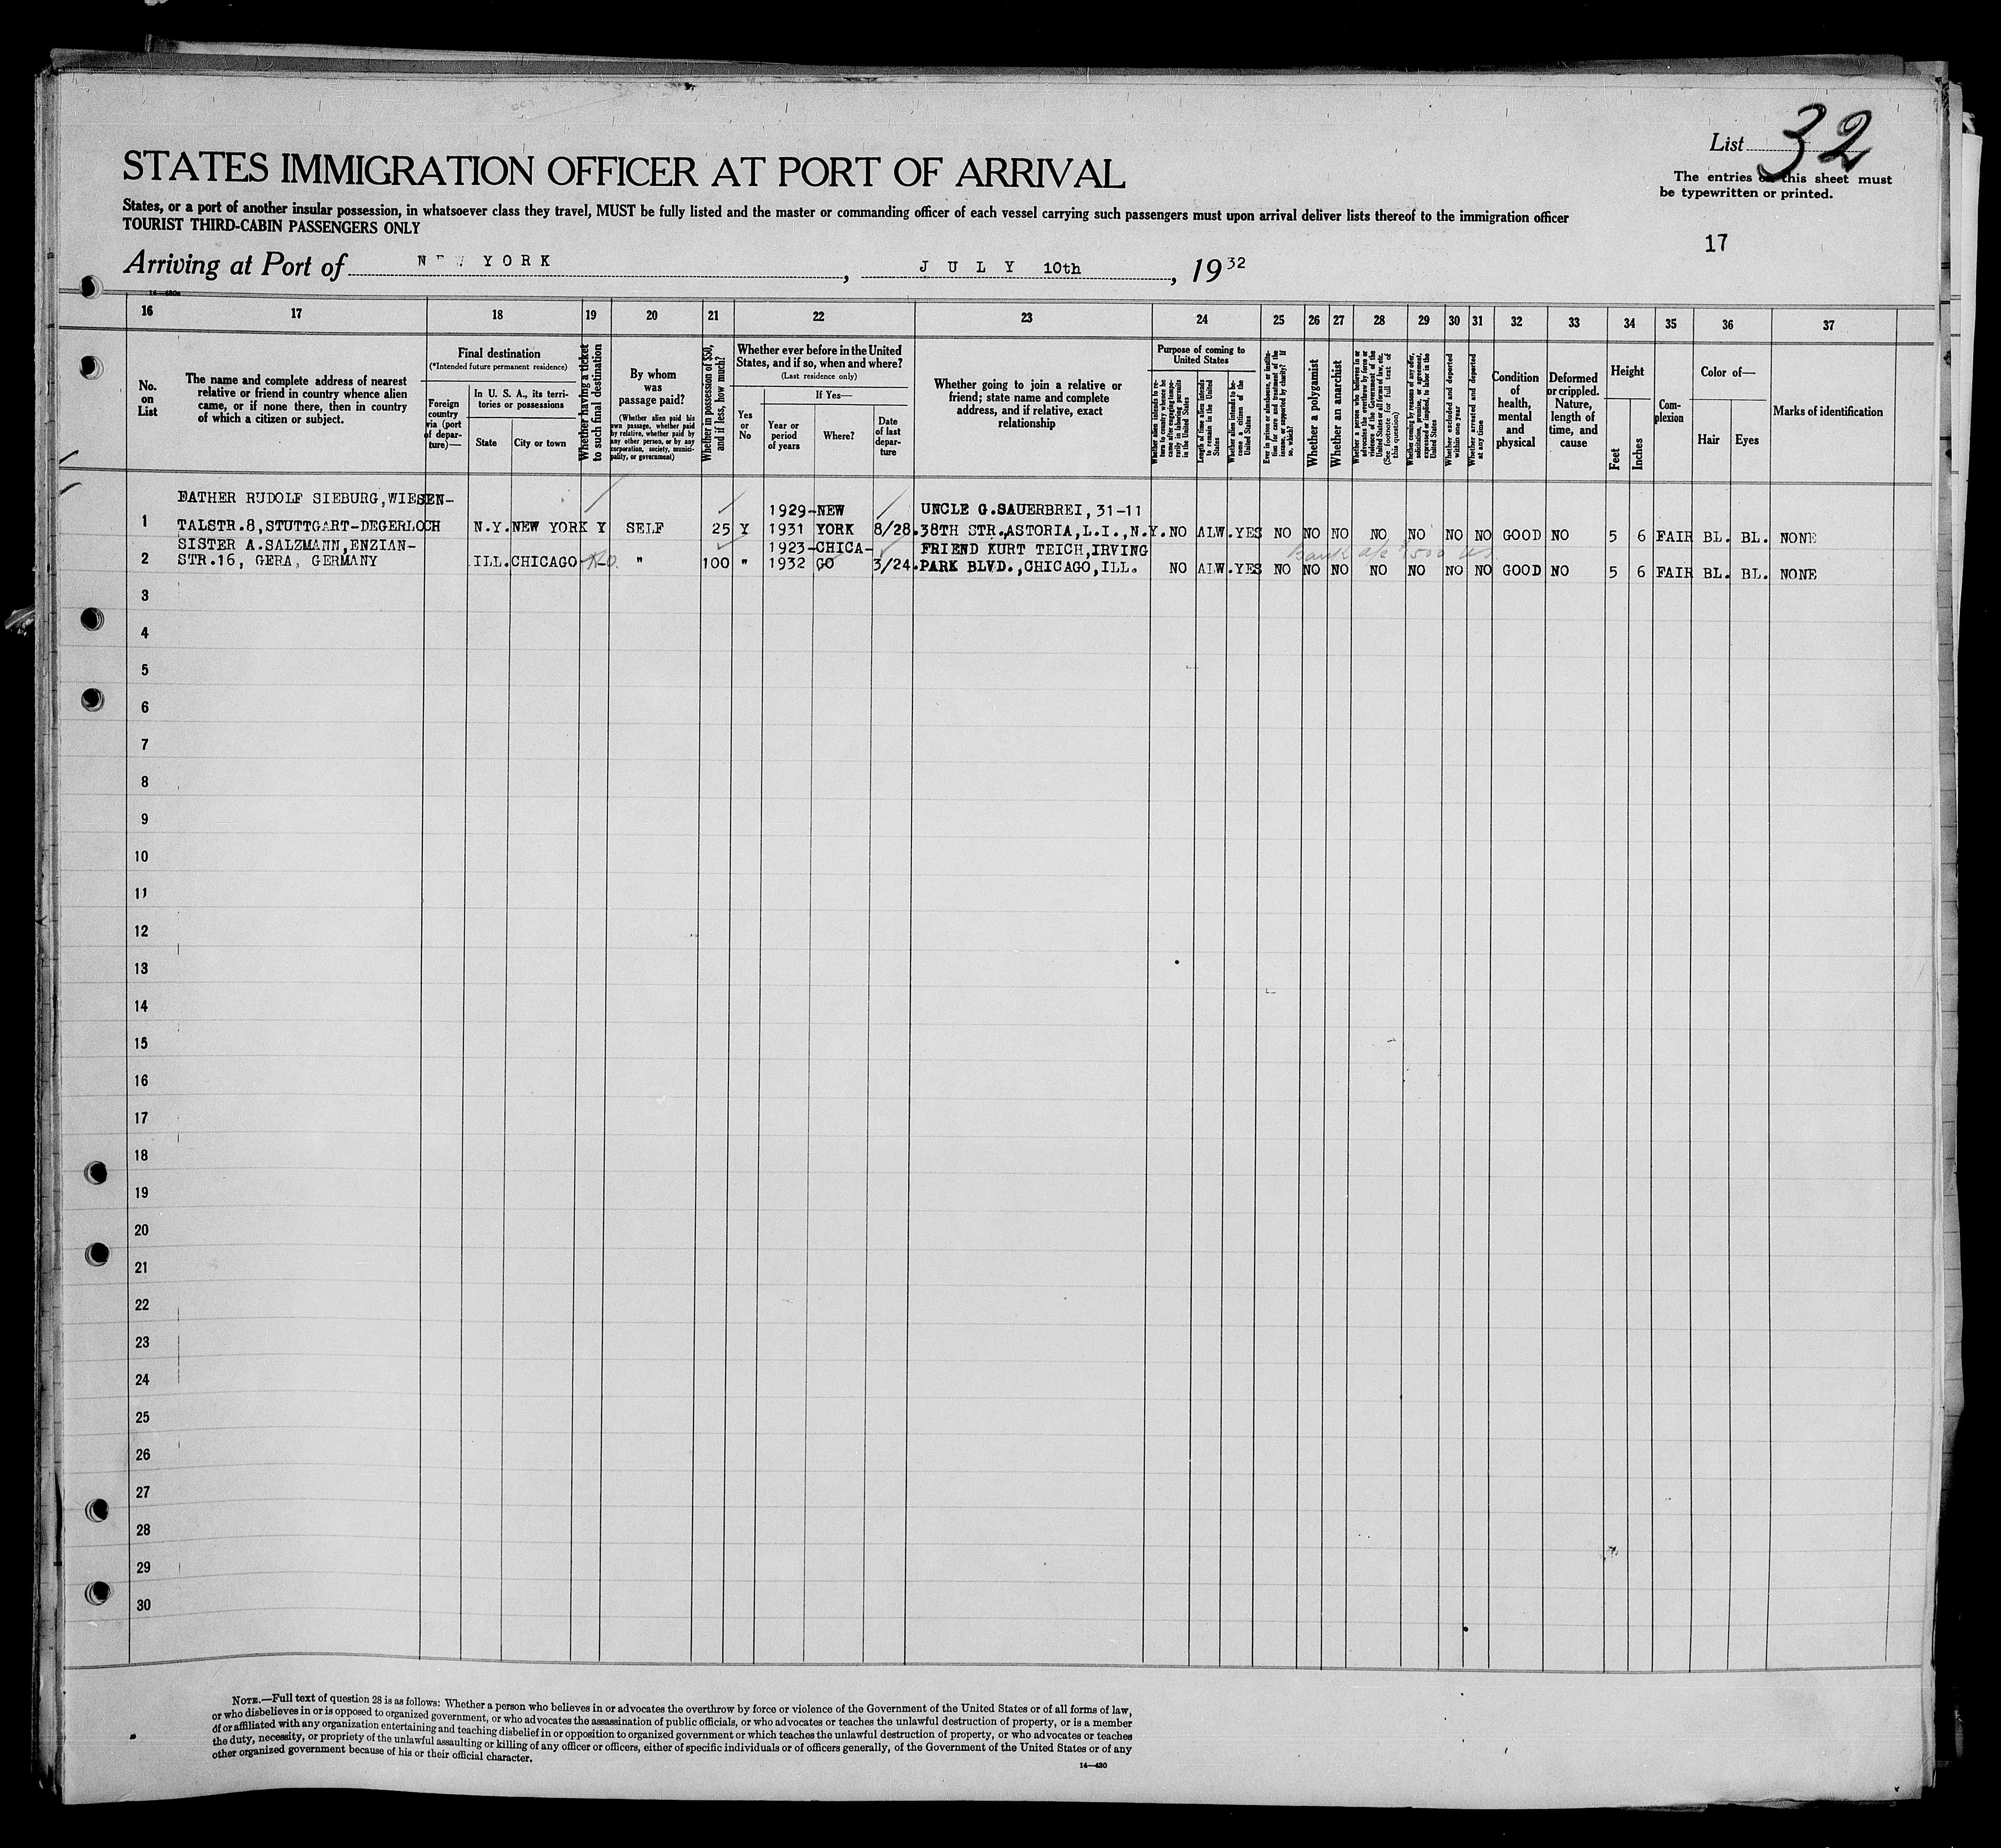 List 32
STATES IMMIGRATION OFFICER AT PORT OF ARRIVAL
The entries on this sheet must
be typewritten or printed.
States, or a port of another insular possession, in whatsoever class they travel, MUST be fully listed and the master or commanding officer of each vessel carrying such passengers must upon arrival deliver lists thereof to the immigration officer
TOURIST THIRD-CABIN PASSENGERS ONLY
17
Arriving at Port of NEW YORK, JULY 10th, 1932
16 17 18 19 20 21 22 23 24 25 26 27 28 29 30 31 32 33 34 35 36 37
No.
on
List
The name and complete address of nearest
relative or friend in country whence alien
came, or if none there, then in country
of which a citizen or subject.
Final destination
(*Intended future permanent residence)
Foreign
country
via (port
of depar-
ture)—
In U. S. A., its terri-
tories or possessions
State
City or town
Whether having a ticket
to such final destination
By whom
was
passage paid?
(Whether alien paid his
own passage, whether paid
by relative, whether paid by
any other person, or by any
corporation, society, munici-
pality, or government)
Whether in possession of $50,
and if less, how much?
Whether ever before in the United
States, and if so, when and where?
(Last residence only)
Yes
or
No
If Yes—
Year or
period
of years
Where?
Date
of last
depar-
ture
Whether going to join a relative or
friend; state name and complete
address, and if relative, exact
relationship
Purpose of coming to
United States
Length of time alien intends
to remain in the United
States
Whether alien intends to be-
come a citizen of the
United States
Whether a polygamist
Whether an anarchist
(See footnote for full text of
this question)
Whether excluded and deported
within one year
Whether arrested and deported
at any time
Condition
of
health,
mental
and
physical
Deformed
or crippled.
Nature,
length of
time, and
cause
Height
Feet
Inches
Com-
plexion
Color of—
Hair
Eyes
Marks of identification
FATHER RUDOLF SIEBURG,WIESEN- 1929-NEW UNCLE G.SAUERBREI, 31-11
1 TALSTR.8,STUTTGART-DEGERLOCH N.Y. NEW YORK Y SELF 25 Y 1931 YORK 8/28. 38TH STR.,ASTORIA,L.I.,N.Y. NO ALW. YES NO NO NO NO NO NO NO GOOD NO 5 6 FAIR BL. BL. NONE
SISTER A.SALZMANN,ENZIAN- 1923-CHICA- FRIEND KURT TEICH,IRVING
2 STR.16, GERA, GERMANY ILL. CHICAGO NO " 100 " 1932 GO 3/24. PARK BLVD.,CHICAGO,ILL. NO ALW. YES NO NO NO NO NO NO NO GOOD NO 5 6 FAIR BL. BL. NONE
3
4
5
6
7
8
9
10
11
12
13
14
15
16
17
18
19
20
21
22
23
24
25
26
27
28
29
30
NOTE.—Full text of question 28 is as follows: Whether a person who believes in or advocates the overthrow by force or violence of the Government of the United States or of all forms of law,
or who disbelieves in or is opposed to organized government, or who advocates the assassination of public officials, or who advocates or teaches the unlawful destruction of property, or is a member
of or affiliated with any organization entertaining and teaching disbelief in or opposition to organized government or which teaches the unlawful destruction of property, or who advocates or teaches
the duty, necessity, or propriety of the unlawful assaulting or killing of any officer or officers, either of specific individuals or of officers generally, of the Government of the United States or of any
other organized government because of his or their official character.
14—430